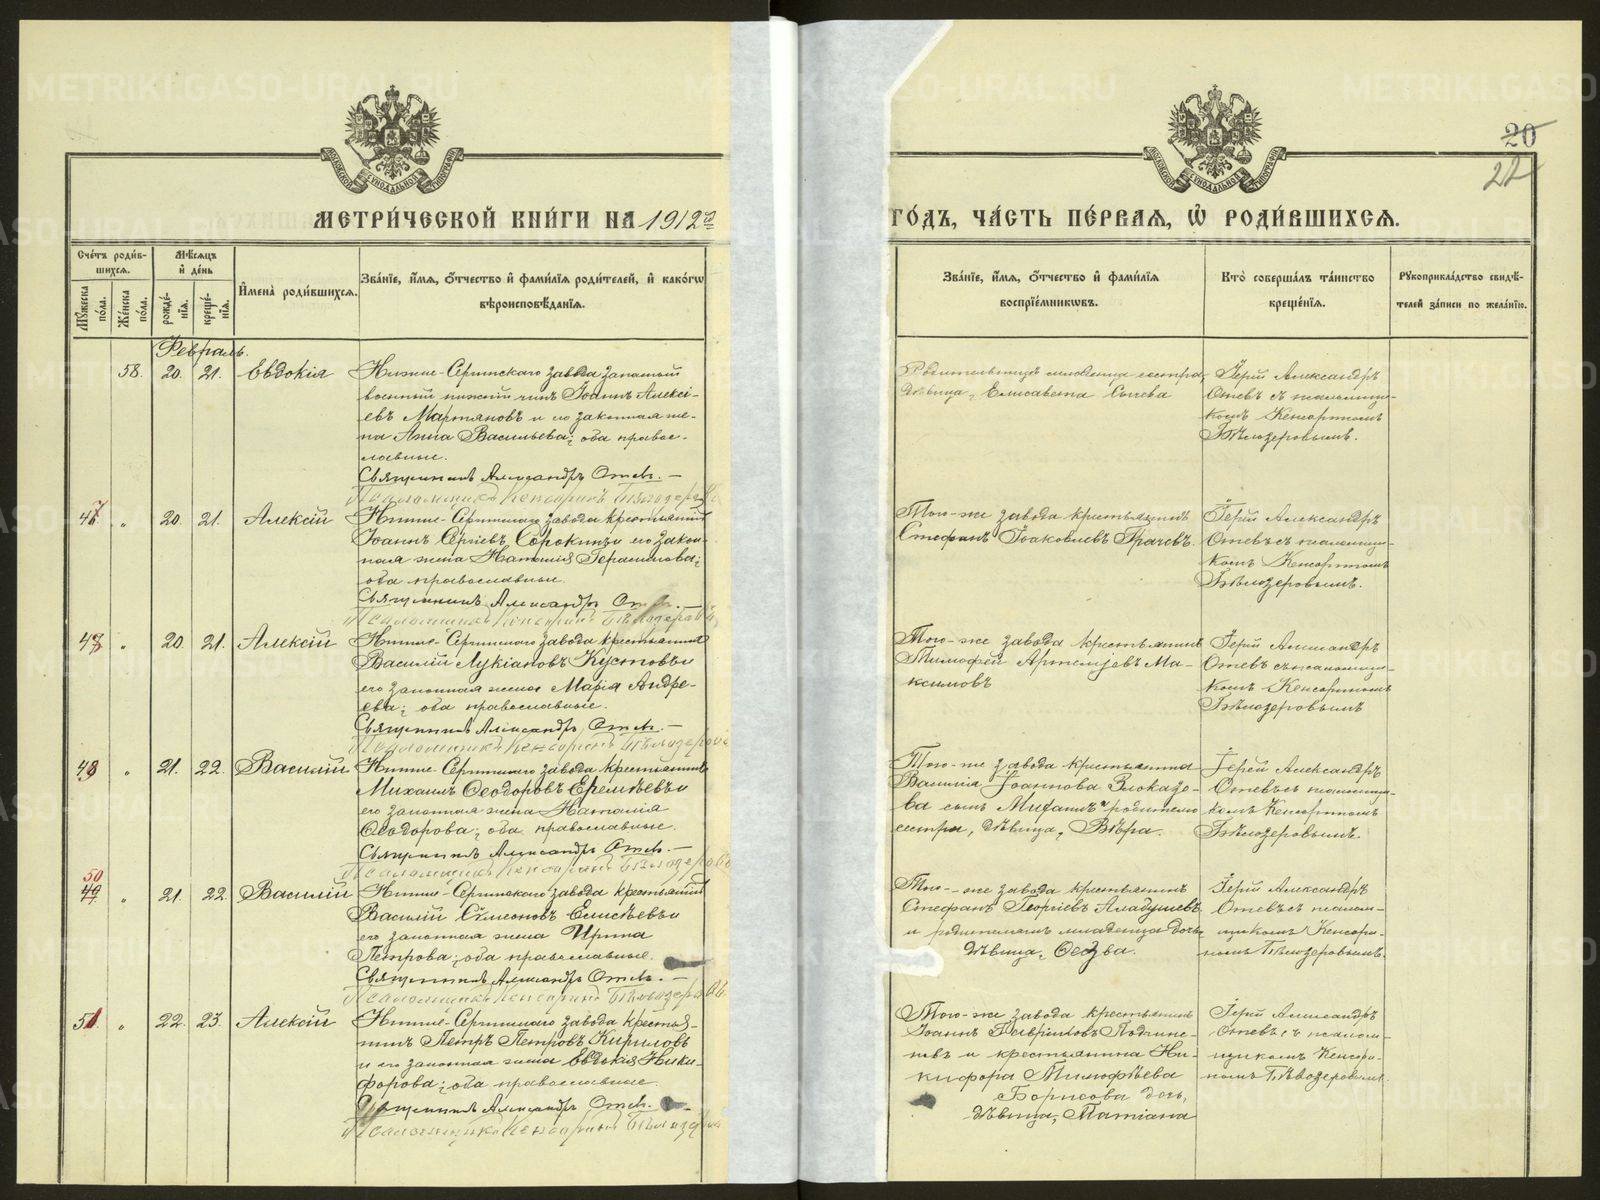 METRIKI.GASO-URAL.RU
20
22
МЕТРИ́ЧЕСКОЙ КНИ́ГИ НА 1912
ГО́ДЪ, ЧА́СТЬ ПЕ́РВАѦ, Ѡ҆ РОДИ́ВШИХСѦ.
Сче́тъ роди́в-
шихсѧ.
Мѣ́сѧцъ
и҆ де́нь
Мꙋ́жеска по́ла.
Же́нска по́ла.
рожде́-нїѧ.
креще́-нїѧ.
И҆мена̀ роди́вшихсѧ.
Зва́нїе, и҆́мѧ, ѻ҆́тчество и҆ фами́лїѧ роди́телей, и҆ како́гѡ
вѣроисповѣ́данїѧ.
Зва́нїе, и҆́мѧ, ѻ҆́тчество и҆ фами́лїѧ
воспрїе́мникѡвъ.
Кто̀ соверша́лъ та́инство
креще́нїѧ.
Рꙋкоприкла́дство свидѣ́-
телей за́писи по жела́нїю.
Февраль.
58. 20. 21. Евдокія
Нижне-Сергинскаго завода запасный
военный нижній чинъ Іоаннъ Алексі-
евъ Мартяновъ и его законная же-
на Анна Васильева; оба право-
славные.
Священникъ Александръ Отевъ.
Псаломщикъ Кенсоринъ Бѣлозеровъ
Родительница младенца сестра,
дѣвица, Елисавета Сычева
Іерей Александръ
Отевъ съ псаломщи-
комъ Кенсориномъ
Бѣлозеровымъ.
47 " 20. 21. Алексій
Нижне-Сергинскаго завода крестьянинъ
Іоаннъ Сергіевъ Сорокинъ и его закон-
ная жена Наталія Герасимова;
оба православные.
Священникъ Александръ Отевъ.
Псаломщикъ Кенсоринъ Бѣлозеровъ
Того-же завода крестьянинъ
Стефанъ Іаковлевъ Грачевъ.
Іерей Александръ
Отевъ съ псаломщи-
комъ Кенсориномъ
Бѣлозеровымъ.
48 " 20. 21. Алексій
Нижне-Сергинскаго завода крестьянинъ
Василій Лукіановъ Кустовъ и
его законная жена Марія Андре-
ева; оба православные.
Священникъ Александръ Отевъ.
Псаломщикъ Кенсоринъ Бѣлозеровъ
Того-же завода крестьянинъ
Тимофей Артемьевъ Ма-
ксимовъ
Іерей Александръ
Отевъ съ псаломщи-
комъ Кенсориномъ
Бѣлозеровымъ
49 " 21. 22. Василій
Нижне-Сергинскаго завода крестьянинъ
Михаилъ Ѳеодоровъ Еремѣевъ и
его законная жена Наталія
Ѳеодорова; оба православные.
Священникъ Александръ Отевъ.
Псаломщикъ Кенсоринъ Бѣлозеровъ
Того-же завода крестьянина
Василія Іоаннова Злоказо-
ва сынъ Михаилъ и родителю
сестра, дѣвица, Вѣра.
Іерей Александръ
Отевъ съ псаломщи-
комъ Кенсориномъ
Бѣлозеровымъ.
50
49 " 21. 22. Василій
Нижне-Сергинскаго завода крестьянинъ
Василій Сѵмеоновъ Елисѣевъ и
его законная жена Ирина
Петрова; оба православные.
Священникъ Александръ Отевъ.
Псаломщикъ Кенсоринъ Бѣлозеровъ
Того-же завода крестьянинъ
Стефанъ Георгіевъ Аладушевъ
и родителямъ младенца дочь
дѣвица,
Іерей Александръ
Отевъ съ псалом-
щикомъ Кенсори-
номъ Бѣлозеровымъ.
51 " 22. 23. Алексій
Нижне-Сергинскаго завода крестья-
нинъ Петръ Петровъ Кириловъ
и его законная жена Евдокія Ники-
форова; оба православные.
Священникъ Александръ Отевъ.
Псаломщикъ Кенсоринъ Бѣлозеровъ
Того-же завода крестьянинъ
Іоаннъ Гавріиловъ
и крестьянина Ни-
кифора Тимофѣева
Борисова дочь,
дѣвица, Татіана
Іерей Александръ
Отевъ съ псалом-
щикомъ Кенсори-
номъ Бѣлозеровымъ